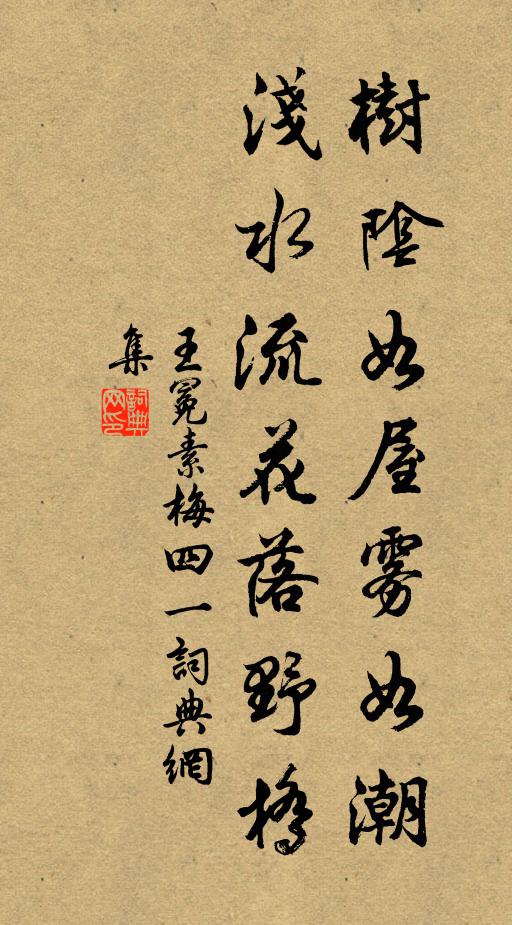 樹陰如屋雾如潮
淺水流花落野橋
王冕素梅四一詞典網
集
詞典
网印